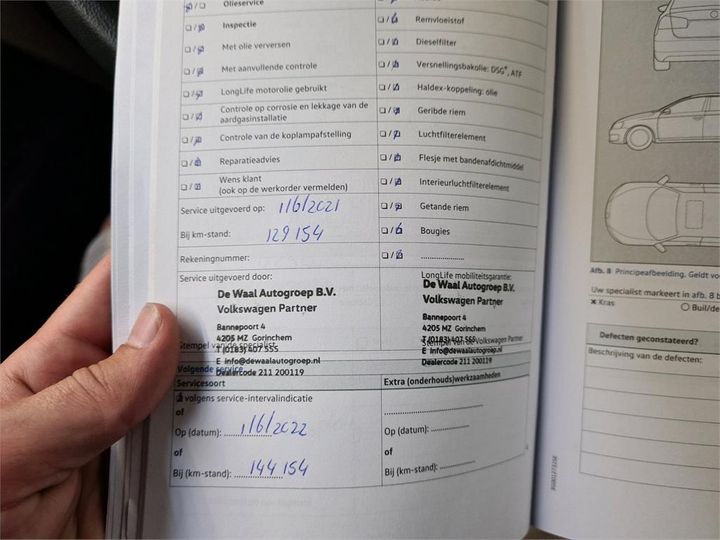 Olieservice
Inspectie
Met olie verversen
Met aanvullende controle
LongLife motorolie gebruikt
Controle op corrosie en lekkage van de
aardgasinstallatie
Controle van de koplampafstelling
Reparatieadvies
Wens klant
(ook op de werkorder vermelden)
Service uitgevoerd op: 1/6/2021
Bij km-stand: 129 154
Rekeningnummer:
Service uitgevoerd door:
De Waal Autogroep B.V.
Volkswagen Partner
Bannepoort 4
4205 MZ Gorinchem
T (0183) 407 555
Stempel van de specialist
E info@dewaalautogroep.nl
Dealercode 211 200119
Remvloeistof
Dieselfilter
Versnellingsbakolie: DSG®, ATF
Haldex-koppeling: olie
Geribde riem
Luchtfilterelement
Flesje met bandenafdichtmiddel
Interieurluchtfilterelement
Getande riem
Bougies
LongLife mobiliteitsgarantie:
De Waal Autogroep B.V.
Volkswagen Partner
Bannepoort 4
4205 MZ Gorinchem
T (0183) 407 555
Stempel van de Volkswagen Partner
E info@dewaalautogroep.nl
Dealercode 211 200119
Volgende service
Servicesoort
volgens service-intervalindicatie
of
Op (datum): 1/6/2022
of
Bij (km-stand): 144 154
Extra (onderhouds)werkzaamheden
Op (datum):
of
Bij (km-stand):
Afb. 8 Principeafbeelding. Geldt vo
Uw specialist markeert in afb. 8
Kras
Buil/de
Defecten geconstateerd?
Beschrijving van de defecten: